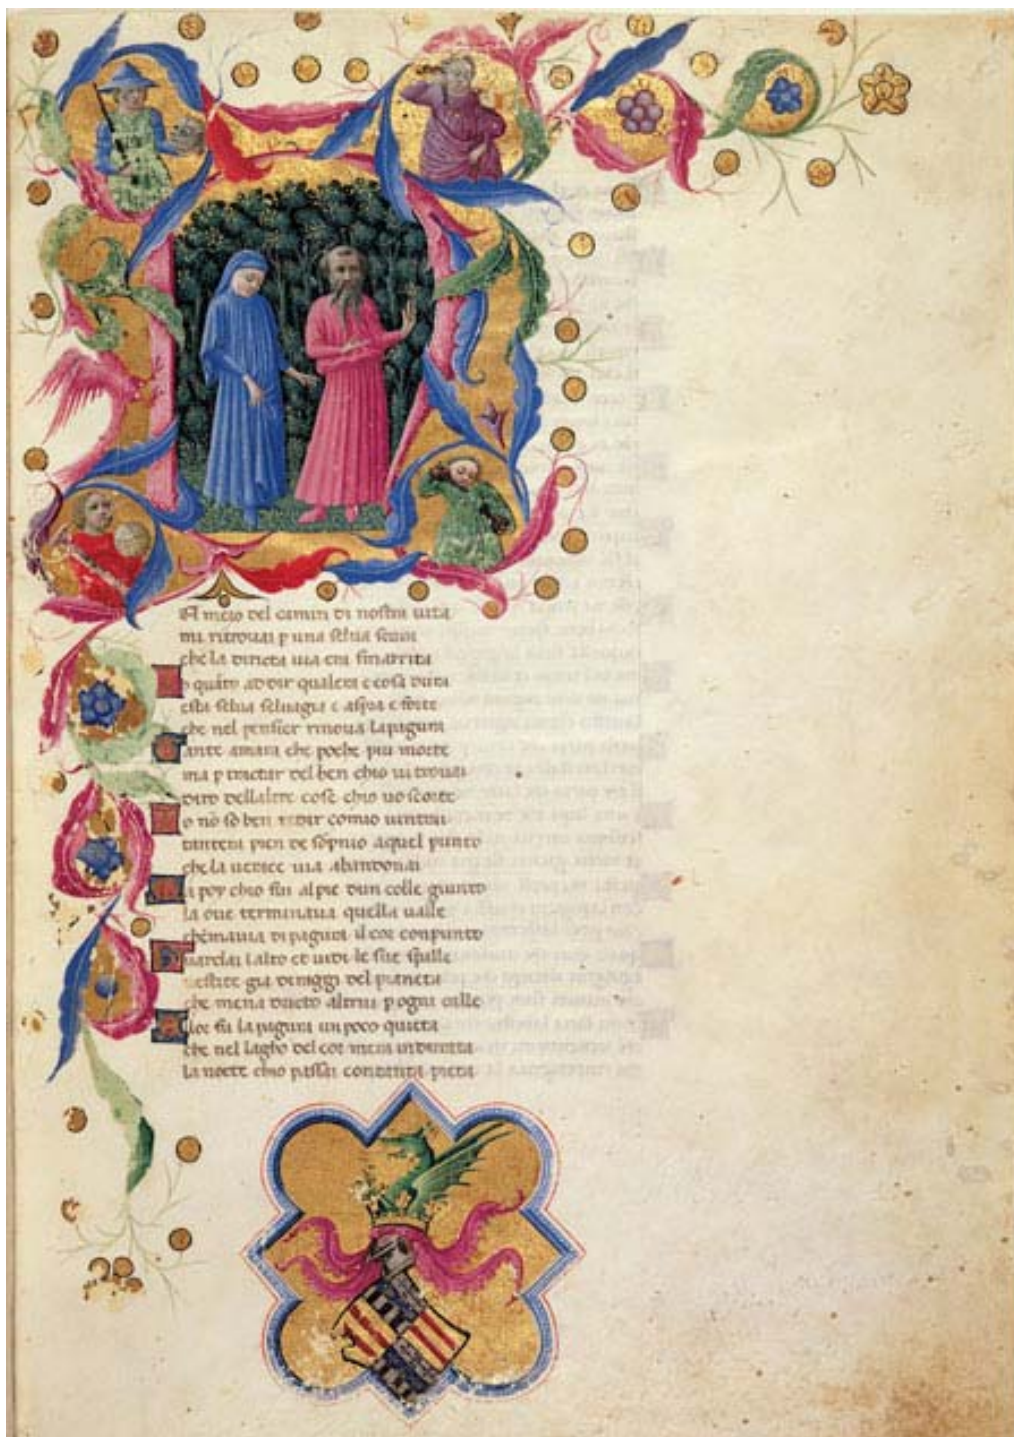 A mezo del camin di nostra uita
mi ritrouai p una selua scura
che la diricta uia era smarrita
o quãto ad dir qual era e cosa dura
esta selua seluagia e aspra e forte
che nel pensier rinoua la pagura
Tante amara che poche piu morte
ma p tractar del ben chio ui trouai
diro dellaltre cose chio uo scorte
o nõ so ben redir comio uentrai
tantera pien de sõpnio a quel punto
che la uerace uia abandonai
Ma poy chio fui al pie dun colle giunto
la oue terminaua quella ualle
che mauia di pagura il cor conpunto
guardai ĩ alto et uidi le sue spalle
uestite gia de raggi del pianeta
che mena dricto altrui p ogni calle
Alor fu la pagura un poco quieta
che nel lagho del cor mera indurata
la nocte chio passai con tanta pieta